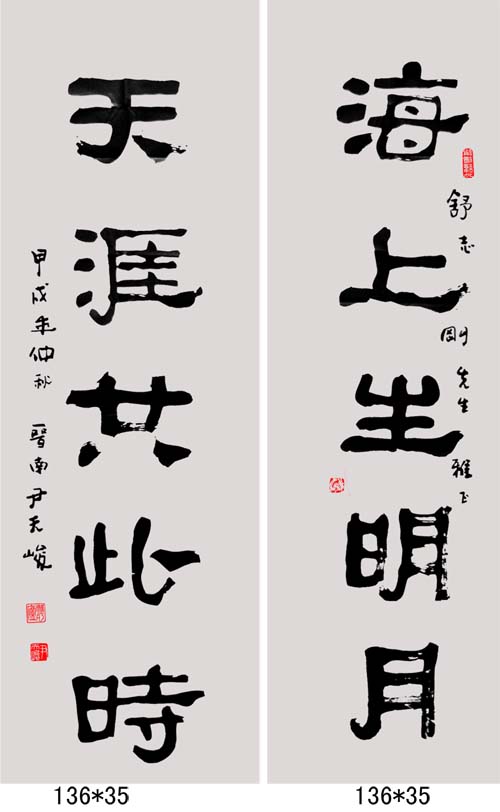 舒志剛先生雅正
海上生明月
天涯共此時
甲戌年仲秋 晉南尹天峻
136*35
136*35